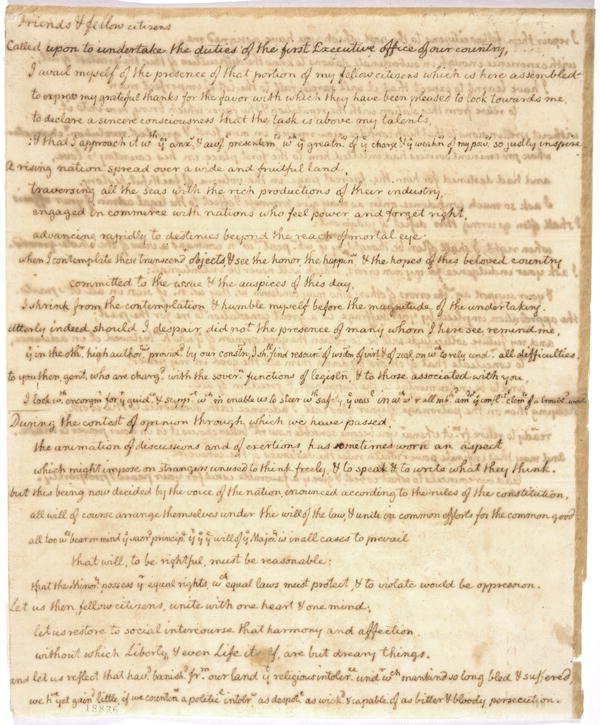 Friends & fellow citizens
Called upon to undertake the duties of the first Executive office of our country,
I avail myself of the presence of that portion of my fellow citizens which is here assembled
to express my grateful thanks for the favor with which they have been pleased to look towards me,
to declare a sincere consciousness that the task is above my talents,
& that I approach it wth yse anxs. & awfl. presentemts. wch ye greatnss. of ye charge & ye weakns. of my powrs. so justly inspire
A rising nation spread over a wide and fruitful land,
traversing all the seas with the rich productions of their industry,
engaged in commerce with nations who feel power and forget right,
advancing rapidly to destinies beyond the reach of mortal eye;
when I contemplate these transcendt. objects & see the honor the happinss. & the hopes of this beloved country
committed to the issue & the auspices of this day,
I shrink from the contemplation & humble myself before the magnitude of the undertaking.
Utterly indeed should I despair, did not the presence of many whom I here see, remind me,
yt in the othr. high authorities. providd. by our constn. I shll. find resourcs. of wisdm of virt. & of zeal, on wch to rely undr. all difficulties,
to you then, gent. who are chargd. with the soverns. functions of legisln, & to those associated with you,
I look wth encorgmt for yt guidce. & support wch. m enable us to steer wth safty. ye vessl. in wch. w r all mbkd. amdst ye conflictg. elemts of a troubld. world
During the contest of opinion through which we have passed,
the animation of discussions and of exertions, has sometimes worn an aspect
which might impose on strangers unused to think freely, & to speak & to write what they think.
but this being now decided by the voice of the nation, enounced according to the rules of the constitution,
all will of course arrange themselves under the will of the law, & unite in common efforts for the common good
all too wll bear in mind ys sacrd principl. yt tho' ye will of ye Majorty is in all cases to prevail
that will, to be rightful, must be reasonable:
that the Minorty. possess yr equal rights, wch equal laws must protect, & to violate would be oppression.
Let us then, fellow citizens, unite with one heart & one mind;
let us restore to social intercourse that harmony and affection
without which Liberty, & even Life itself, are but dreary things.
and let us reflect that havg. banishd. frm. our land yt religious intolerce. undr. wch mankind so long bled & suffered,
we hve yet gaind little, if we countence. a political intolrce. as despotc. as wickd. & capable of as bitter & bloody persecution.
18836